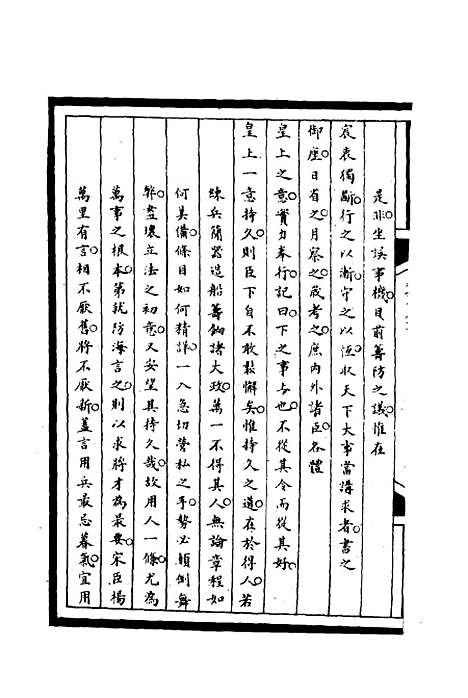 是非坐誤事機目前籌防之議惟在
宸衷獨斷行之以漸守之以恆收天下大事當講求者書之
御座日省之月察之歲考之庶內外諸臣各體
皇上之意實力奉行記曰下之事上也不從其令而從其好
皇上一意持久則臣下自不敢鬆懈矣惟持久之道在於得人若
練兵簡器造船籌餉諸大政萬一不得其人無論章程如
何具備條目如何精詳一入急切營私之手勢必顛倒舞
弊盡壞立法之初意又安望其持久哉故用人一條尤為
萬事之根本第就防海言之則以求將才為最要宋臣楊
萬里有言相不厭舊將不厭新蓋言用兵最忌暮氣宜用